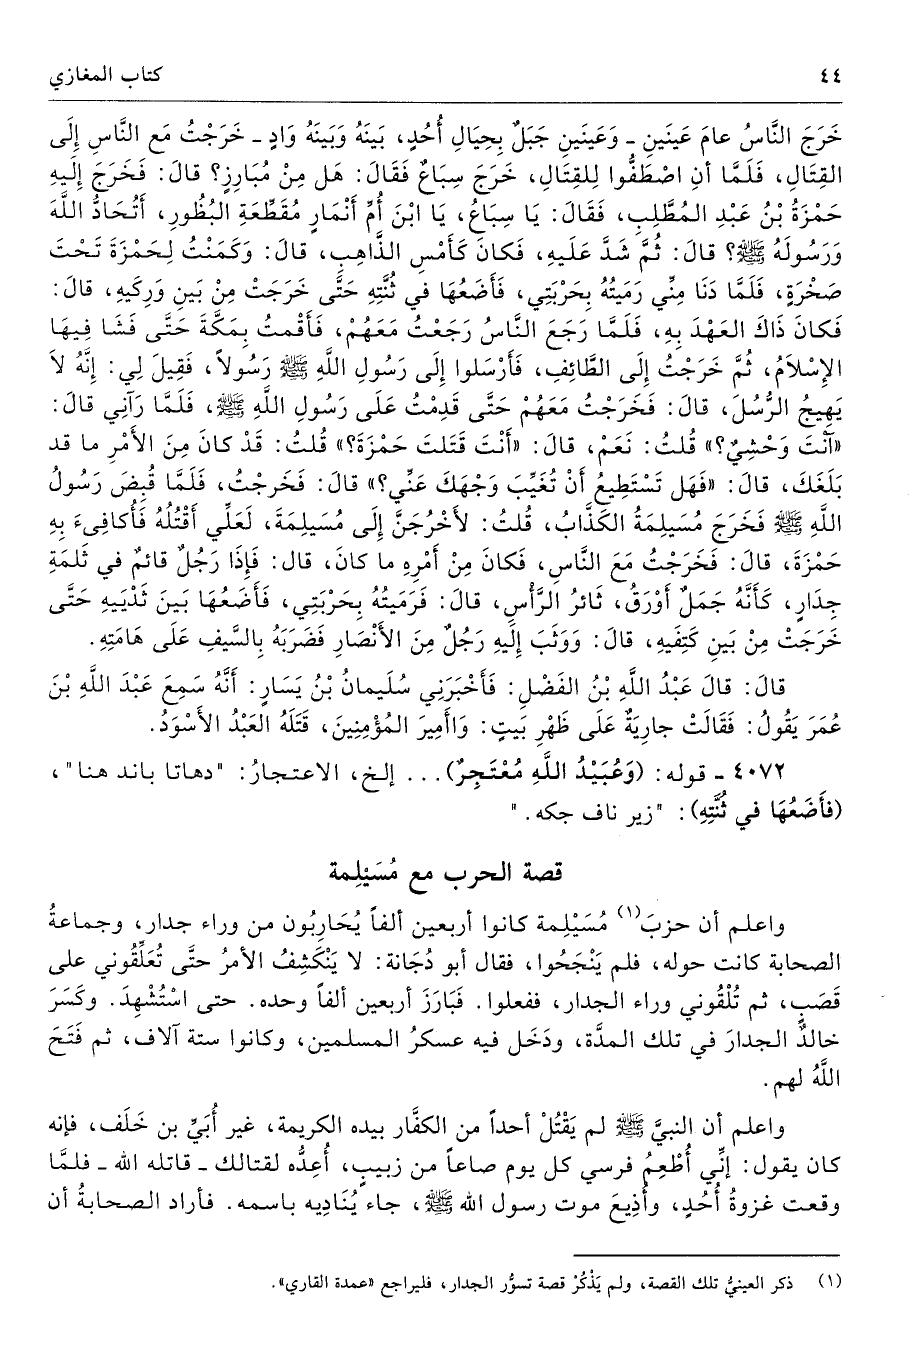 ٤٤ كتاب المغازي
خَرَجَ النَّاسُ عامَ عَينَينِ ـ وَعَينَينِ جَبَلٌ بِحِيَالِ أُحُدٍ، بَينَهُ وَبَينَهُ وَادٍ ـ خَرَجْتُ مَع النَّاسِ إِلَى
القِتَالِ، فَلَمَّا أنِ اصْطَفُّوا لِلقِتَالِ، خَرَجَ سِبَاعٌ فَقَالَ: هَل مِنْ مُبَارِزٍ؟ قالَ: فَخَرَجَ إِلَيهِ
حَمْزَةُ بْنُ عَبْدِ المُطَّلِبِ، فَقَالَ: يَا سِبَاعُ، يَا ابْنَ أُمِّ أَنْمَارٍ مُقَطِّعَةِ البُظُورِ، أَتُحَادُّ اللَّهَ
وَرَسُولَهُ ﷺ؟ قالَ: ثُمَّ شَدَّ عَلَيهِ، فَكانَ كَأَمْسِ الذَّاهِبِ، قالَ: وَكَمَنْتُ لِحَمْزَةَ تَحْتَ
صَخْرَةٍ، فَلَمَّا دَنَا مِنِّي رَمَيتُهُ بِحَرْبَتِي، فَأَضَعُهَا في ثُنَّتِهِ حَتَّى خَرَجَتْ مِنْ بَينِ وَرِكَيهِ، قالَ:
فَكانَ ذَاكَ العَهْدَ بِهِ، فَلَمَّا رَجَعَ النَّاسُ رَجَعْتُ مَعَهُمْ، فَأَقْمتُ بِمَكَّةَ حَتَّى فَشَا فِيهَا
الإِسْلاَمُ، ثُمَّ خَرَجْتُ إِلَى الطَّائِفِ، فَأَرْسَلوا إِلَى رَسُولِ اللَّهِ ﷺ رَسُولاً، فَقِيلَ لِي: إِنَّهُ لاَ
يَهِيجُ الرُّسُلَ، قالَ: فَخَرَجْتُ مَعَهُمْ حَتَّى قَدِمْتُ عَلَى رَسُولِ اللَّهِ ﷺ، فَلَمَّا رَآنِي قالَ:
«آنْتَ وَحْشِيٌّ؟» قُلتُ: نَعَمْ، قالَ: «أَنْتَ قَتَلتَ حَمْزَةَ؟» قُلتُ: قَدْ كانَ مِنَ الأَمْرِ ما قد
بَلَغَكَ، قالَ: «فَهَل تَسْتَطِيعُ أَنْ تُغَيِّبَ وَجْهَكَ عَنِّي؟» قالَ: فَخَرَجْتُ، فَلَمَّا قُبِضَ رَسُولُ
اللَّهِ ﷺ فَخَرَجَ مُسَيلِمَةُ الكَذَّابُ، قُلتُ: لأَخْرُجَنَّ إِلَى مُسَيلِمَةَ، لَعَلِّي أَقْتُلُهُ فَأُكافِىءَ بِهِ
حَمْزَةَ، قالَ: فَخَرَجْتُ مَعَ النَّاسِ، فَكانَ مِنْ أَمْرِهِ ما كانَ، قال: فَإِذَا رَجُلٌ قائمٌ في ثَلمَةِ
جِدَارٍ، كَأَنَّهُ جَمَلٌ أَوْرَقُ، ثَائرُ الرَّأْسِ، قالَ: فَرَمَيتُهُ بِحَرْبَتِي، فَأَضَعُهَا بَينَ ثَدْيَيهِ حَتَّى
خَرَجَتْ مِنْ بَينِ كَتِفَيهِ، قالَ: وَوَثَبَ إِلَيهِ رَجُلٌ مِنَ الأَنْصَارِ فَضَرَبَهُ بِالسَّيفِ عَلَى هَامَتِهِ.
قالَ: قالَ عَبْدُ اللَّهِ بْنُ الفَضْلِ: فَأَخْبَرَنِي سُلَيمانُ بْنُ يَسَارٍ: أَنَّهُ سَمِعَ عَبْدَ اللَّهِ بْنَ
عُمَرَ يَقُولُ: فَقَالَتْ جارِيَةٌ عَلَى ظَهْرِ بَيتٍ: وَاأَمِيرَ المُؤْمِنِينَ، قَتَلَهُ العَبْدُ الأَسْوَدُ.
٤٠٧٢ ـ قوله: (وَعُبَيْدُ اللَّهِ مُعْتَجِرٌ)... إلخ، الاعتجارُ: "دهاتا باند هنا"،
(فأَضَعُهَا في ثُنَّتِهِ): "زير ناف جكه."
قصة الحرب مع مُسَيْلِمة
واعلم أن حزبَ(١) مُسَيْلِمة كانوا أربعين ألفاً يُحَارِبُون من وراء جدار، وجماعةُ
الصحابة كانت حوله، فلم يَنْجَحُوا، فقال أبو دُجَانة: لا يَنْكَشِفُ الأمرُ حتَّى تُعَلِّقُوني على
قَصَبٍ، ثم تُلْقُوني وراء الجدار، ففعلوا. فَبَارَزَ أربعين ألفاً وحده. حتى اسْتُشْهِدَ. وكَسَرَ
خالدٌ الجدارَ في تلك المدَّة، ودَخَل فيه عسكرُ المسلمين، وكانوا ستة آلاف، ثم فَتَحَ
اللَّهُ لهم.
واعلم أن النبيَّ ﷺ لم يَقْتُلْ أحداً من الكفَّار بيده الكريمة، غير أُبَيِّ بن خَلَف، فإنه
كان يقول: إنِّي أُطْعِمُ فرسي كل يوم صاعاً من زبيبٍ، أُعِدُّه لقتالك ـ قاتله الله ـ فلمَّا
وقعت غزوةُ أُحُدٍ، وأُذِيعَ موت رسول الله ﷺ، جاء يُنَادِيه باسمه. فأراد الصحابةُ أن
(١) ذكر العينيُّ تلك القصة، ولم يَذْكُرْ قصة تسوُّر الجدار، فليراجع «عمدة القاري».